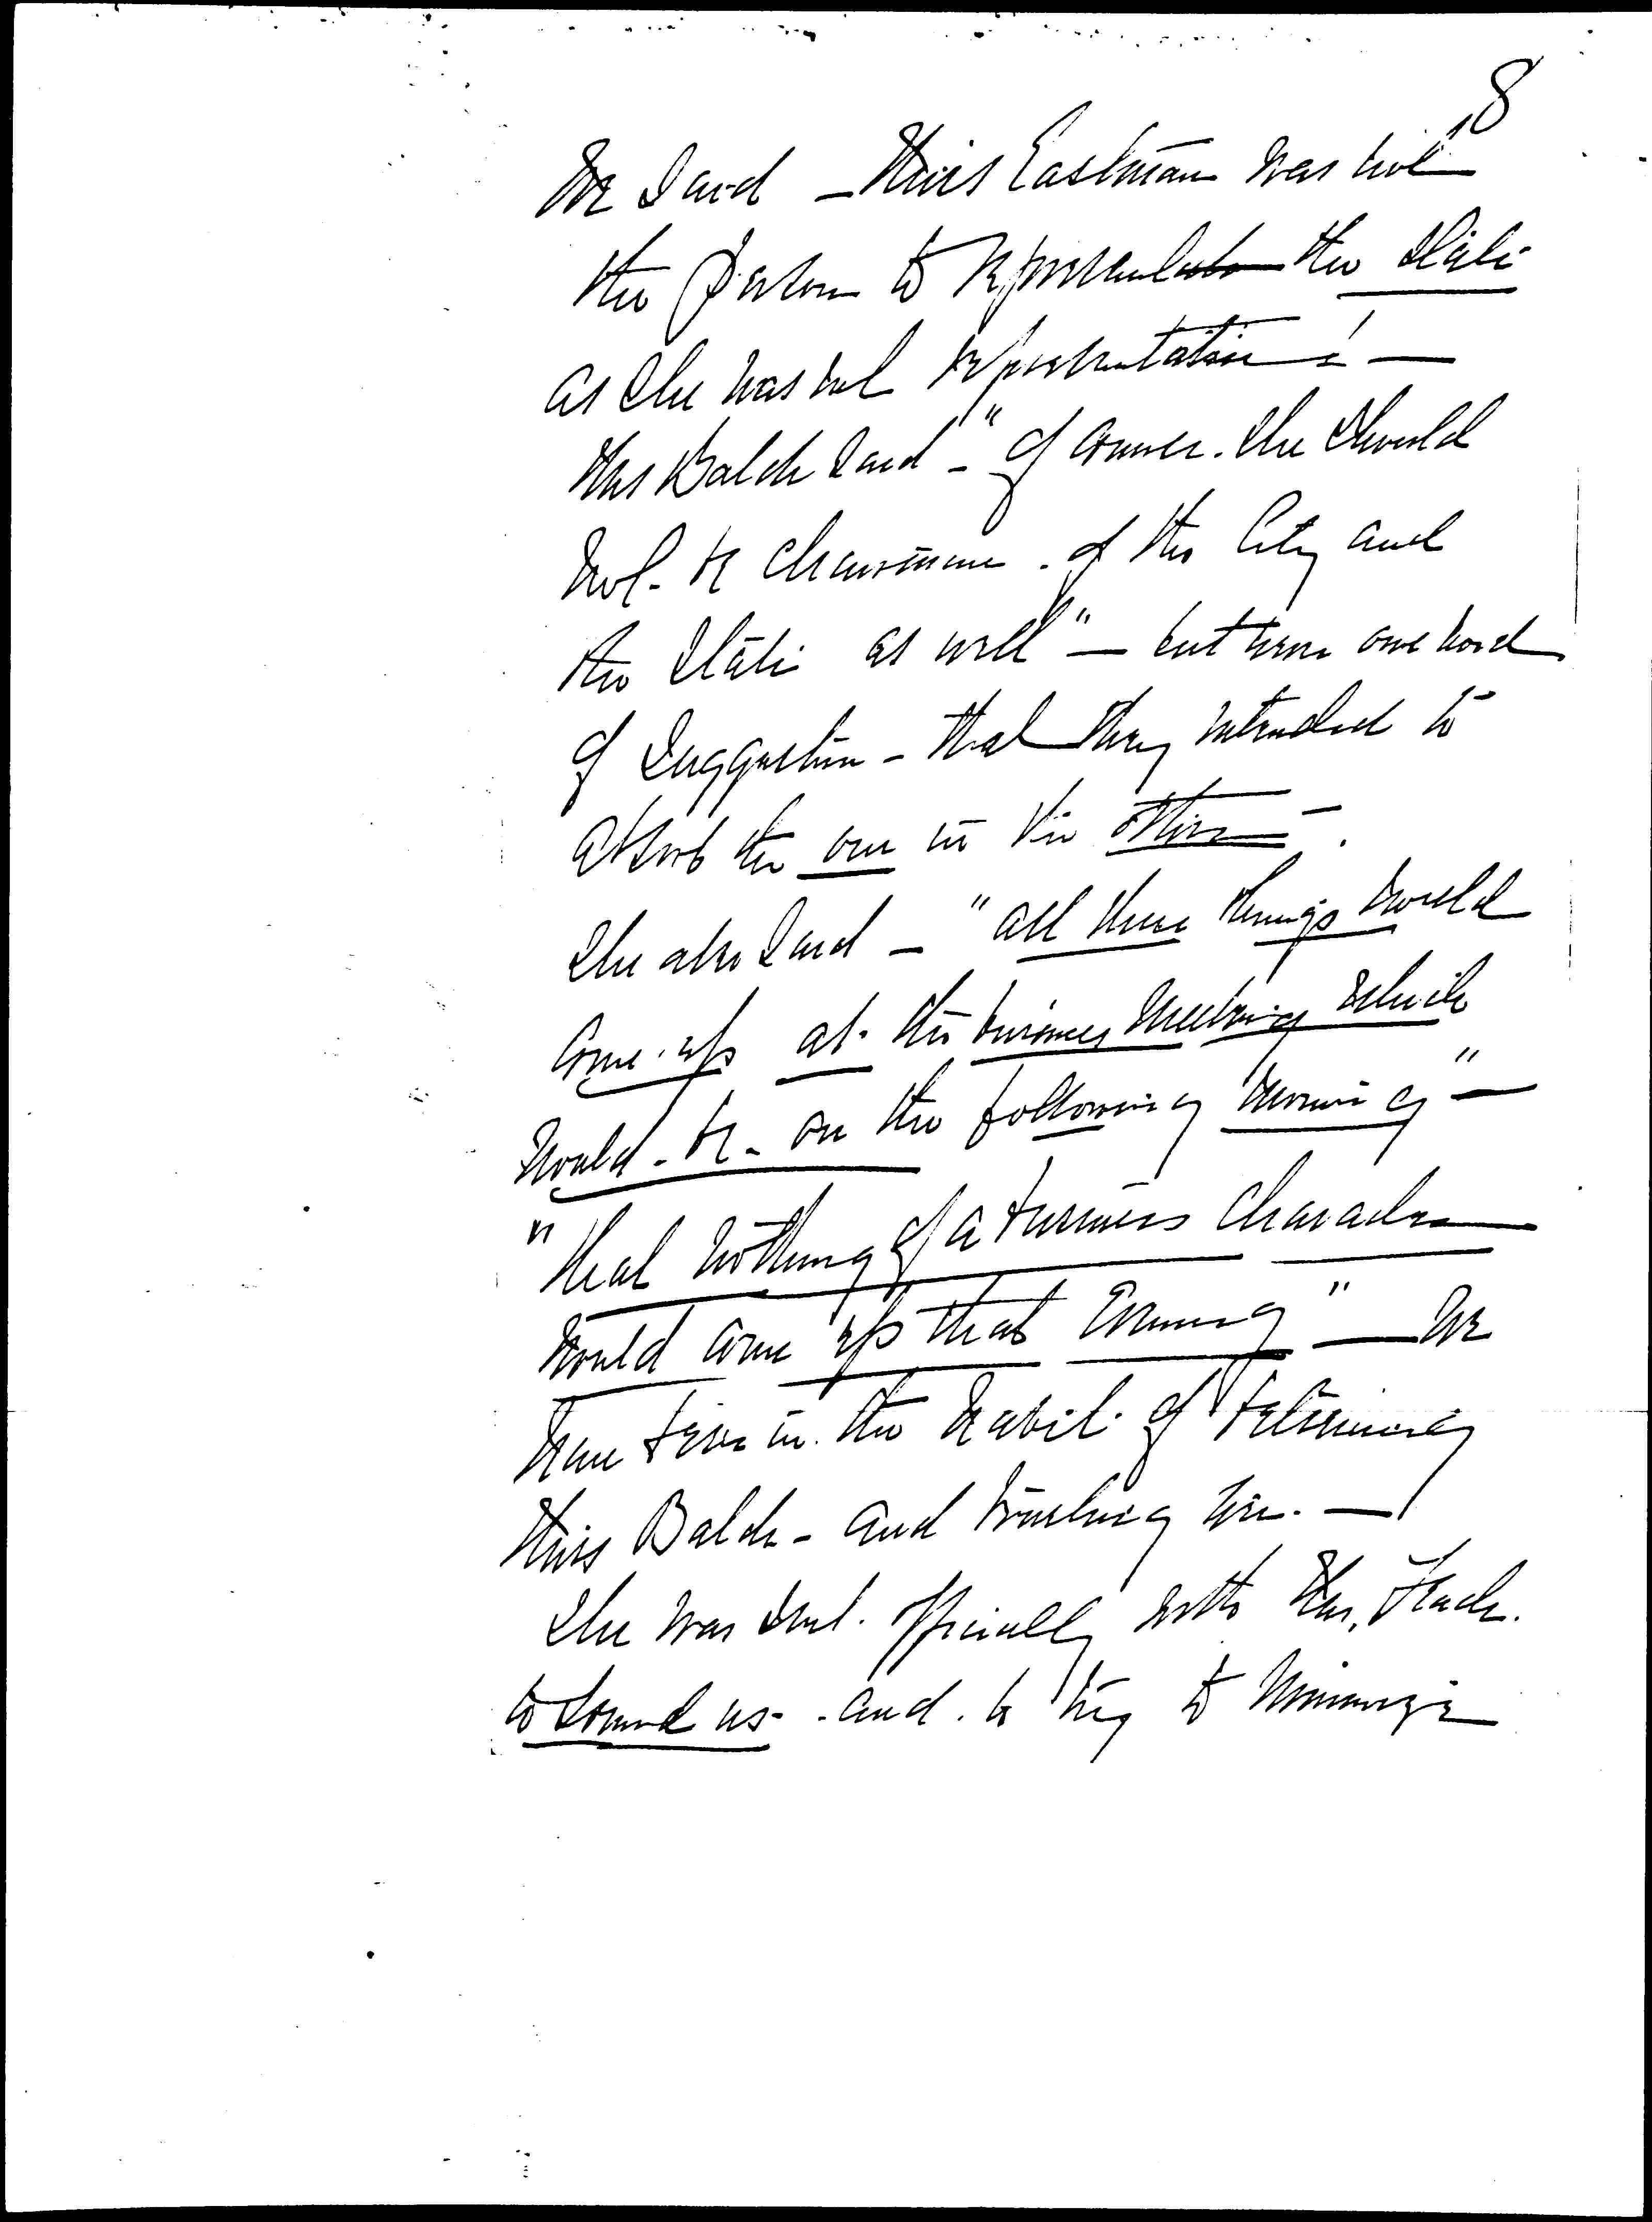 8
We said - Miss Eastman was not
the person to represent the State
as she was not representative! -
Miss Balch said - "of course. She should
not be chairman of the City and
the State as well" - but never one word
of suggestion - that they intended to
absorb the one in the other - .
She also said - "all these things would
come up at the business meeting which
would be on the following morning" -
"that nothing of a business character
would come up that Evening" - We
have been in the habit of believing
Miss Balch - and trusting her. -
She was sent officially with Mrs.
to sound us - and to try to minimize